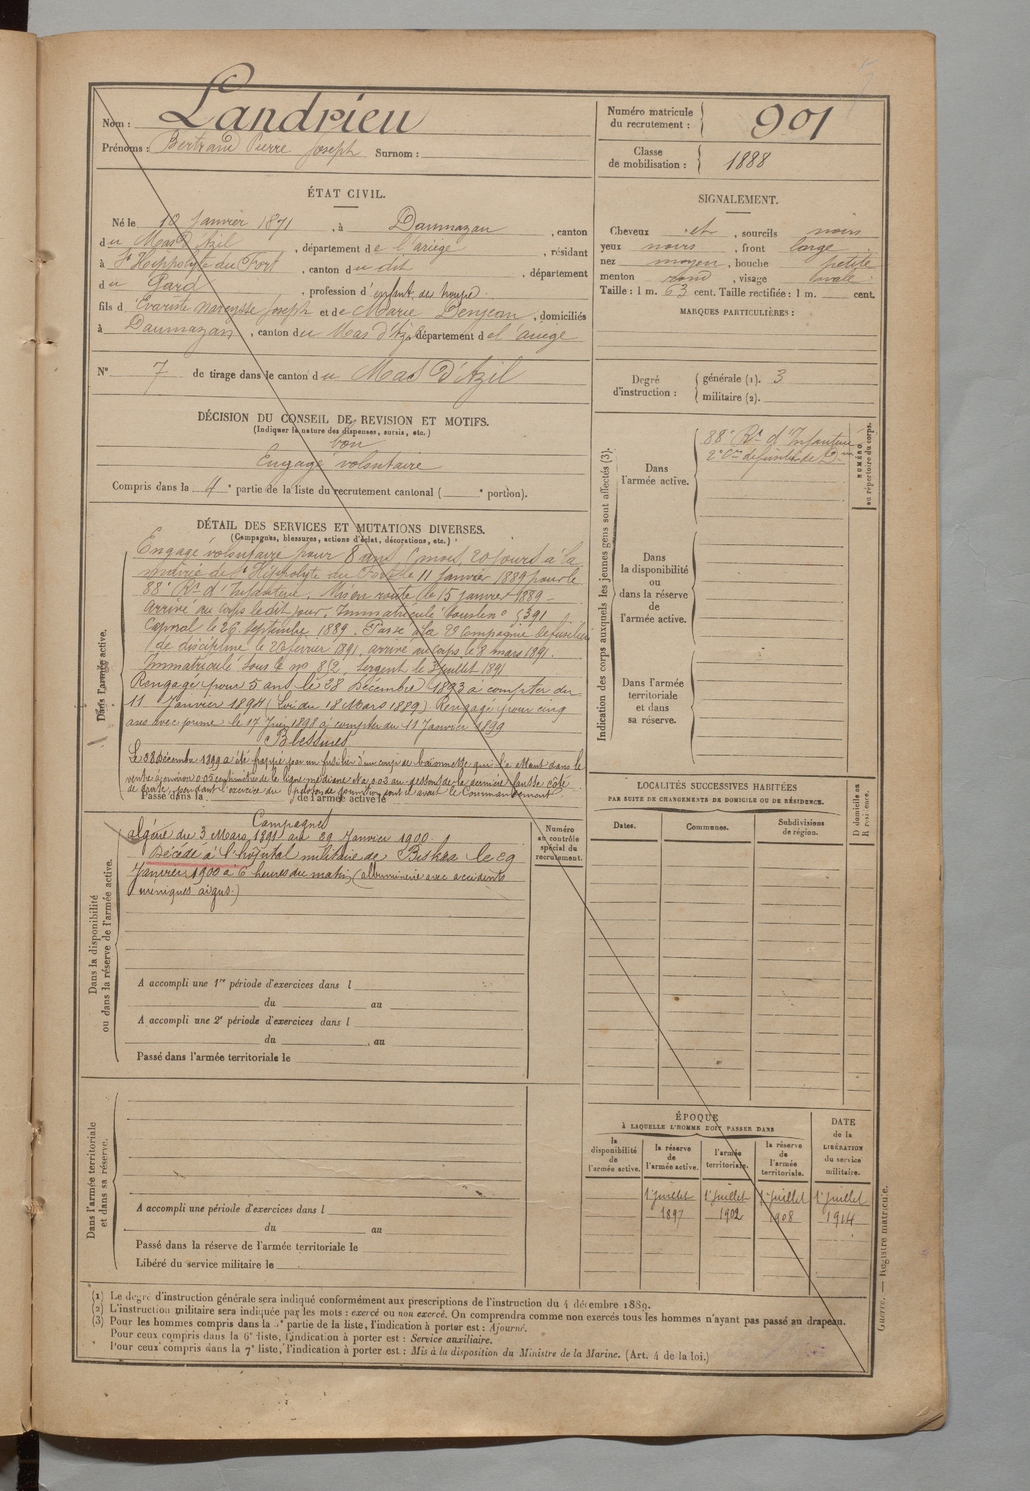 Nom : Landrieu
Prénoms : Bertrand Pierre Joseph Surnom :
Numéro matricule du recrutement : 901
Classe de mobilisation : 1888
ÉTAT CIVIL.
Né le 10 Janvier 1871, à Daumazan, canton
du Mas d'Azil, département de l'ariège, résidant
à St Hippolyte du Fort, canton du dit, département
du Gard, profession d'enfant de troupe
fils d'Evariste Narcysse Joseph et de Marie Denjean, domiciliés
à Daumazan, canton du Mas d'Azil département de l'ariège
N° 7 de tirage dans le canton du Mas d'Azil
DÉCISION DU CONSEIL DE REVISION ET MOTIFS.
(Indiquer la nature des dispenses, sursis, etc.)
bon
Engagé volontaire
Compris dans la 4e partie de la liste du recrutement cantonal ( e portion).
SIGNALEMENT.
Cheveux et, sourcils noirs
yeux noirs, front large
nez moyen, bouche petite
menton rond, visage ovale
Taille : 1 m. 63 cent. Taille rectifiée : 1 m. cent.
MARQUES PARTICULIÈRES :
Degré d'instruction : générale (1). 3
militaire (2).
DÉTAIL DES SERVICES ET MUTATIONS DIVERSES.
(Campagnes, blessures, actions d'éclat, décorations, etc.)
Dans l'armée active.
Engagé volontaire pour 8 ans mois 20 jours à la
mairie de St Hippolyte du Fort le 11 janvier 1889 pour le
88e Rt d'Infanterie. Mis en route le 15 janvier 1889
Arrivé au corps le dit jour. Immatriculé sous le n° 5391
Caporal le 26 septembre 1889. Passé à la 2e Compagnie de fusiliers
de discipline le 26 février 1891, arrivé au corps le 8 mars 1891.
Immatriculé sous le no 812. Sergent le 3 juillet 1891
Rengagé pour 5 ans le 28 Décembre 1893 à compter du
11 Janvier 1894 (Loi du 18 Mars 1889) Rengagé pour cinq
ans avec prime le 17 Juin 1898 à compter du 11 Janvier 1899
Blessures
Le 28 décembre 1899 a été frappé par un fusilier d'un coup de baionnette qui l'a atteint dans le
ventre à environ 0.05 centimètres de la ligne médiane et à 0.03 au-dessous de la dernière fausse côte
de droite, pendant l'exercice du peloton de punition dont il avait le Commandement
Passé dans la de l'armée active le
Dans la disponibilité ou dans la réserve de l'armée active.
Campagnes
Algérie du 3 Mars 1891 au 29 Janvier 1900
Décédé à l'hôpital militaire de Biskra le 29
Janvier 1900 à 6 heures du matin (albuminerie avec accidents
urémiques aigus.)
Numéro au contrôle spécial du recrutement.
A accompli une 1re période d'exercices dans l
du au
A accompli une 2e période d'exercices dans l
du au
Passé dans l'armée territoriale le
Dans l'armée territoriale et dans sa réserve.
A accompli une période d'exercices dans l
du au
Passé dans la réserve de l'armée territoriale le
Libéré du service militaire le
Indication des corps auxquels les jeunes gens sont affectés (3).
Dans l'armée active.
88e Rt d'Infanterie
2e Cie de fusiliers de
NUMÉRO au répertoire du corps.
Dans la disponibilité ou dans la réserve de l'armée active.
Dans l'armée territoriale et dans sa réserve.
LOCALITÉS SUCCESSIVES HABITÉES
PAR SUITE DE CHANGEMENTS DE DOMICILE OU DE RÉSIDENCE.
Dates. Communes. Subdivisions de région. D domicile ou R résidence.
ÉPOQUE
À LAQUELLE L'HOMME DOIT PASSER DANS
la disponibilité de l'armée active.
la réserve de l'armée active.
l'armée territoriale.
la réserve de l'armée territoriale.
DATE de la LIBÉRATION du service militaire.
1er juillet 1er juillet 1er juillet 1er juillet
1897 1902 1908 1914
(1) Le degré d'instruction générale sera indiqué conformément aux prescriptions de l'instruction du 4 décembre 1889.
(2) L'instruction militaire sera indiquée par les mots : exercé ou non exercé. On comprendra comme non exercés tous les hommes n'ayant pas passé au drapeau.
(3) Pour les hommes compris dans la 5e partie de la liste, l'indication à porter est : Ajourné.
Pour ceux compris dans la 6e liste, l'indication à porter est : Service auxiliaire.
Pour ceux compris dans la 7e liste, l'indication à porter est : Mis à la disposition du Ministre de la Marine. (Art. 4 de la loi.)
Guerre. — Registre matricule.